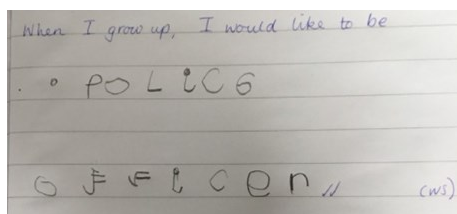 When I grow up, I would like to be
. o POLiCe
OFFiCen,, (ws)